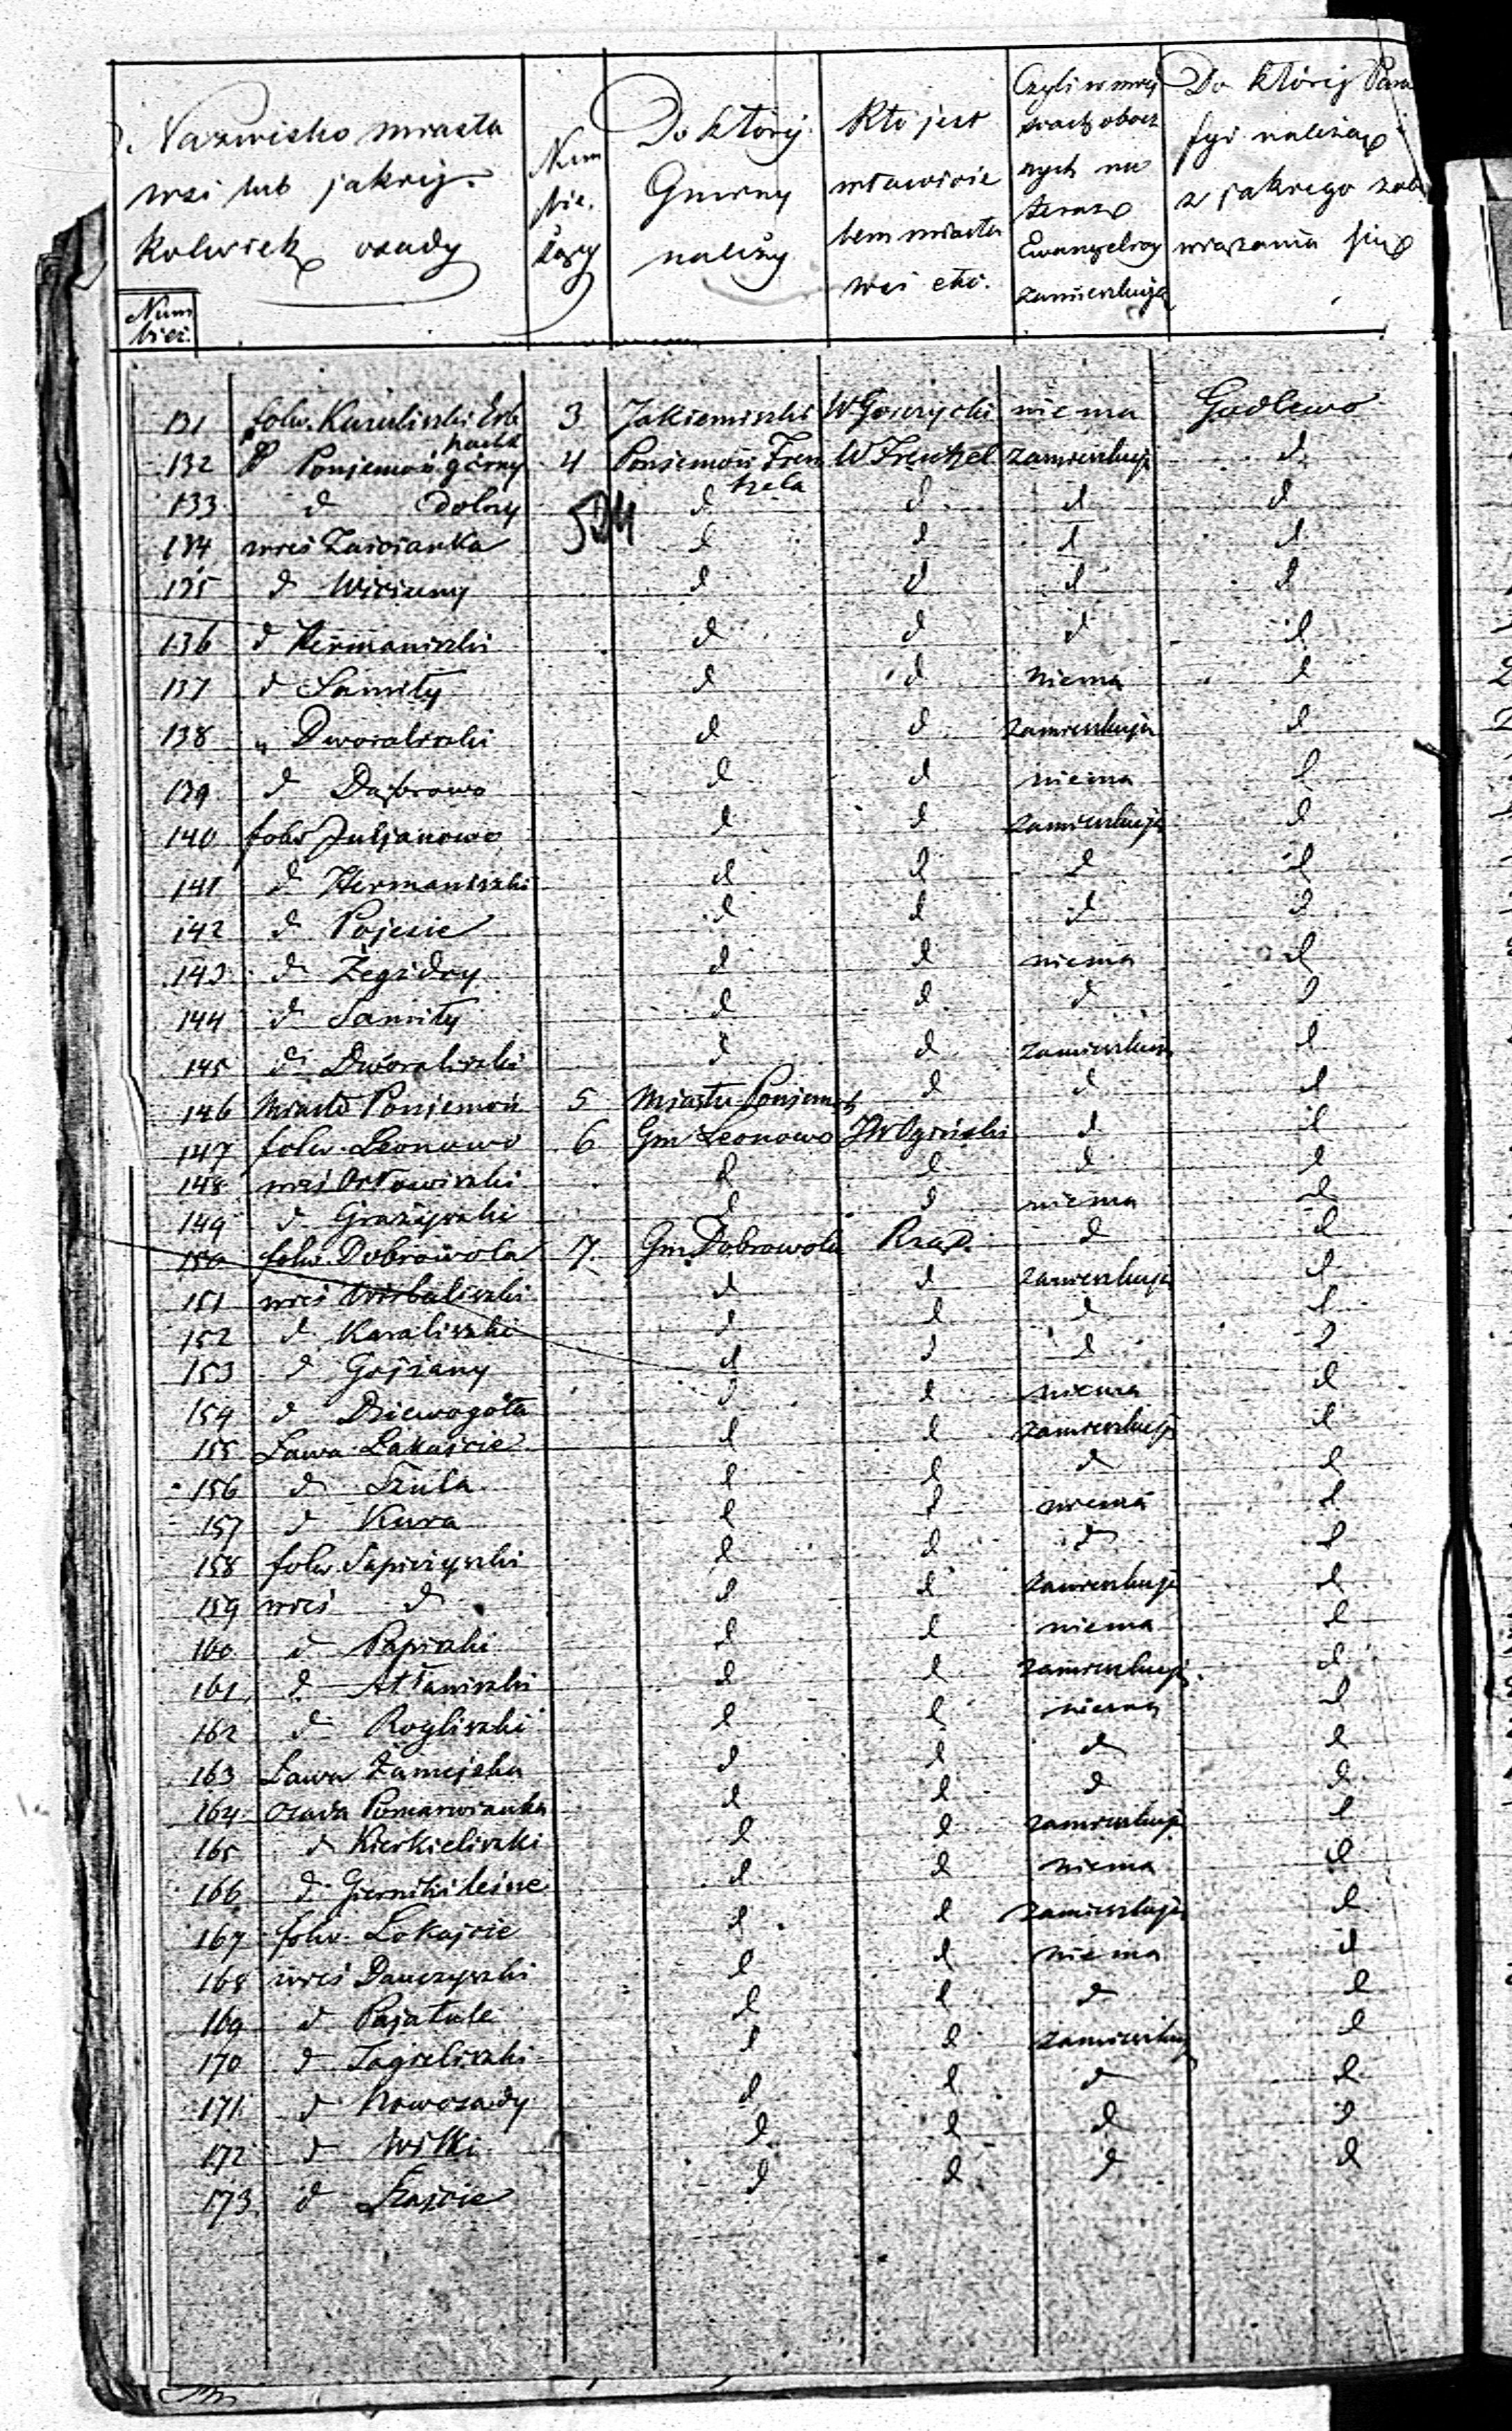 Nazwisko miasta
wsi lub jakiej
kolwiek osady
Num
bież.
Num
bie.
Do którey
Gminy
należy
Kto jest
właścicie
lem miasta
wsi etc.
Czyli w miej
scach obocz
nych na
teraz
Ewangelicy
zamieszkują
Do którey Para
fyi należą i
z jakiego zob
wiązania się
131 folw. Kuruliszki 3 Jakiemiszki W Gorzycki nie ma Godlewo
132 d Poniemoń górny 4 Poniemoń Fren W Frentzel zamieszkują d
tzela
133 d Dolny d d d d
134 wieś Zascianka d d d d
135 d Wiciuny d d d d
136 d Hermaniszki d d d d
137 d Samiły d d niema d
138 " Dworaliszki d d zamieszkują d
139 d Dąbrowo d d niema d
140 folw Juljanowo d d zamieszkują d
141 d Hermaniszki d d d d
142 d Pojesie d d d d
143 d Żegżdry d d niema d
144 d Samiły d d d d
145 d Dworaliszki d d zamieszkują d
146 Miasto Poniemoń 5 Miasto Poniemoń d d d
147 folw. Leonowo 6 Gm Leonowo JW Ogiński d d
148 wieś Orłowiszki d d d d
149 d Grażyszki d d niema d
150 folw. Dobrowola 7 Gm. Dobrowola Rząd. d d
151 wieś Wirbaliszki d d zamieszkują d
152 d Karaliszki d d d d
153 d Gojżany d d d d
154 d Dziewogoła d d niema d
155 Ława Lakajcie d d zamieszkują d
156 d Szula d d d d
157 d Kura d d niema d
158 folw. Sapieżyszki d d d d
159 wieś d d d zamieszkują d
160 d Papiszki d d niema d
161 d Altaniszki d d zamieszkują d
162 d Rogliszki d d niema d
163 Ława Zamejska d d d d
164 Osada Pomarwianka d d d d
165 d Kierkieliszki d d zamieszkują d
166 d Gierniki leśne d d niema d
167 folw. Lokajcie d d zamieszkują d
168 wieś Dauczyszki d d nie ma d
169 d Pajatule d d d d
170 d Jagieliszki d d zamieszkują d
171 d Nowosady d d d d
172 d Wilki d d d d
173 d Szajcie d d d d